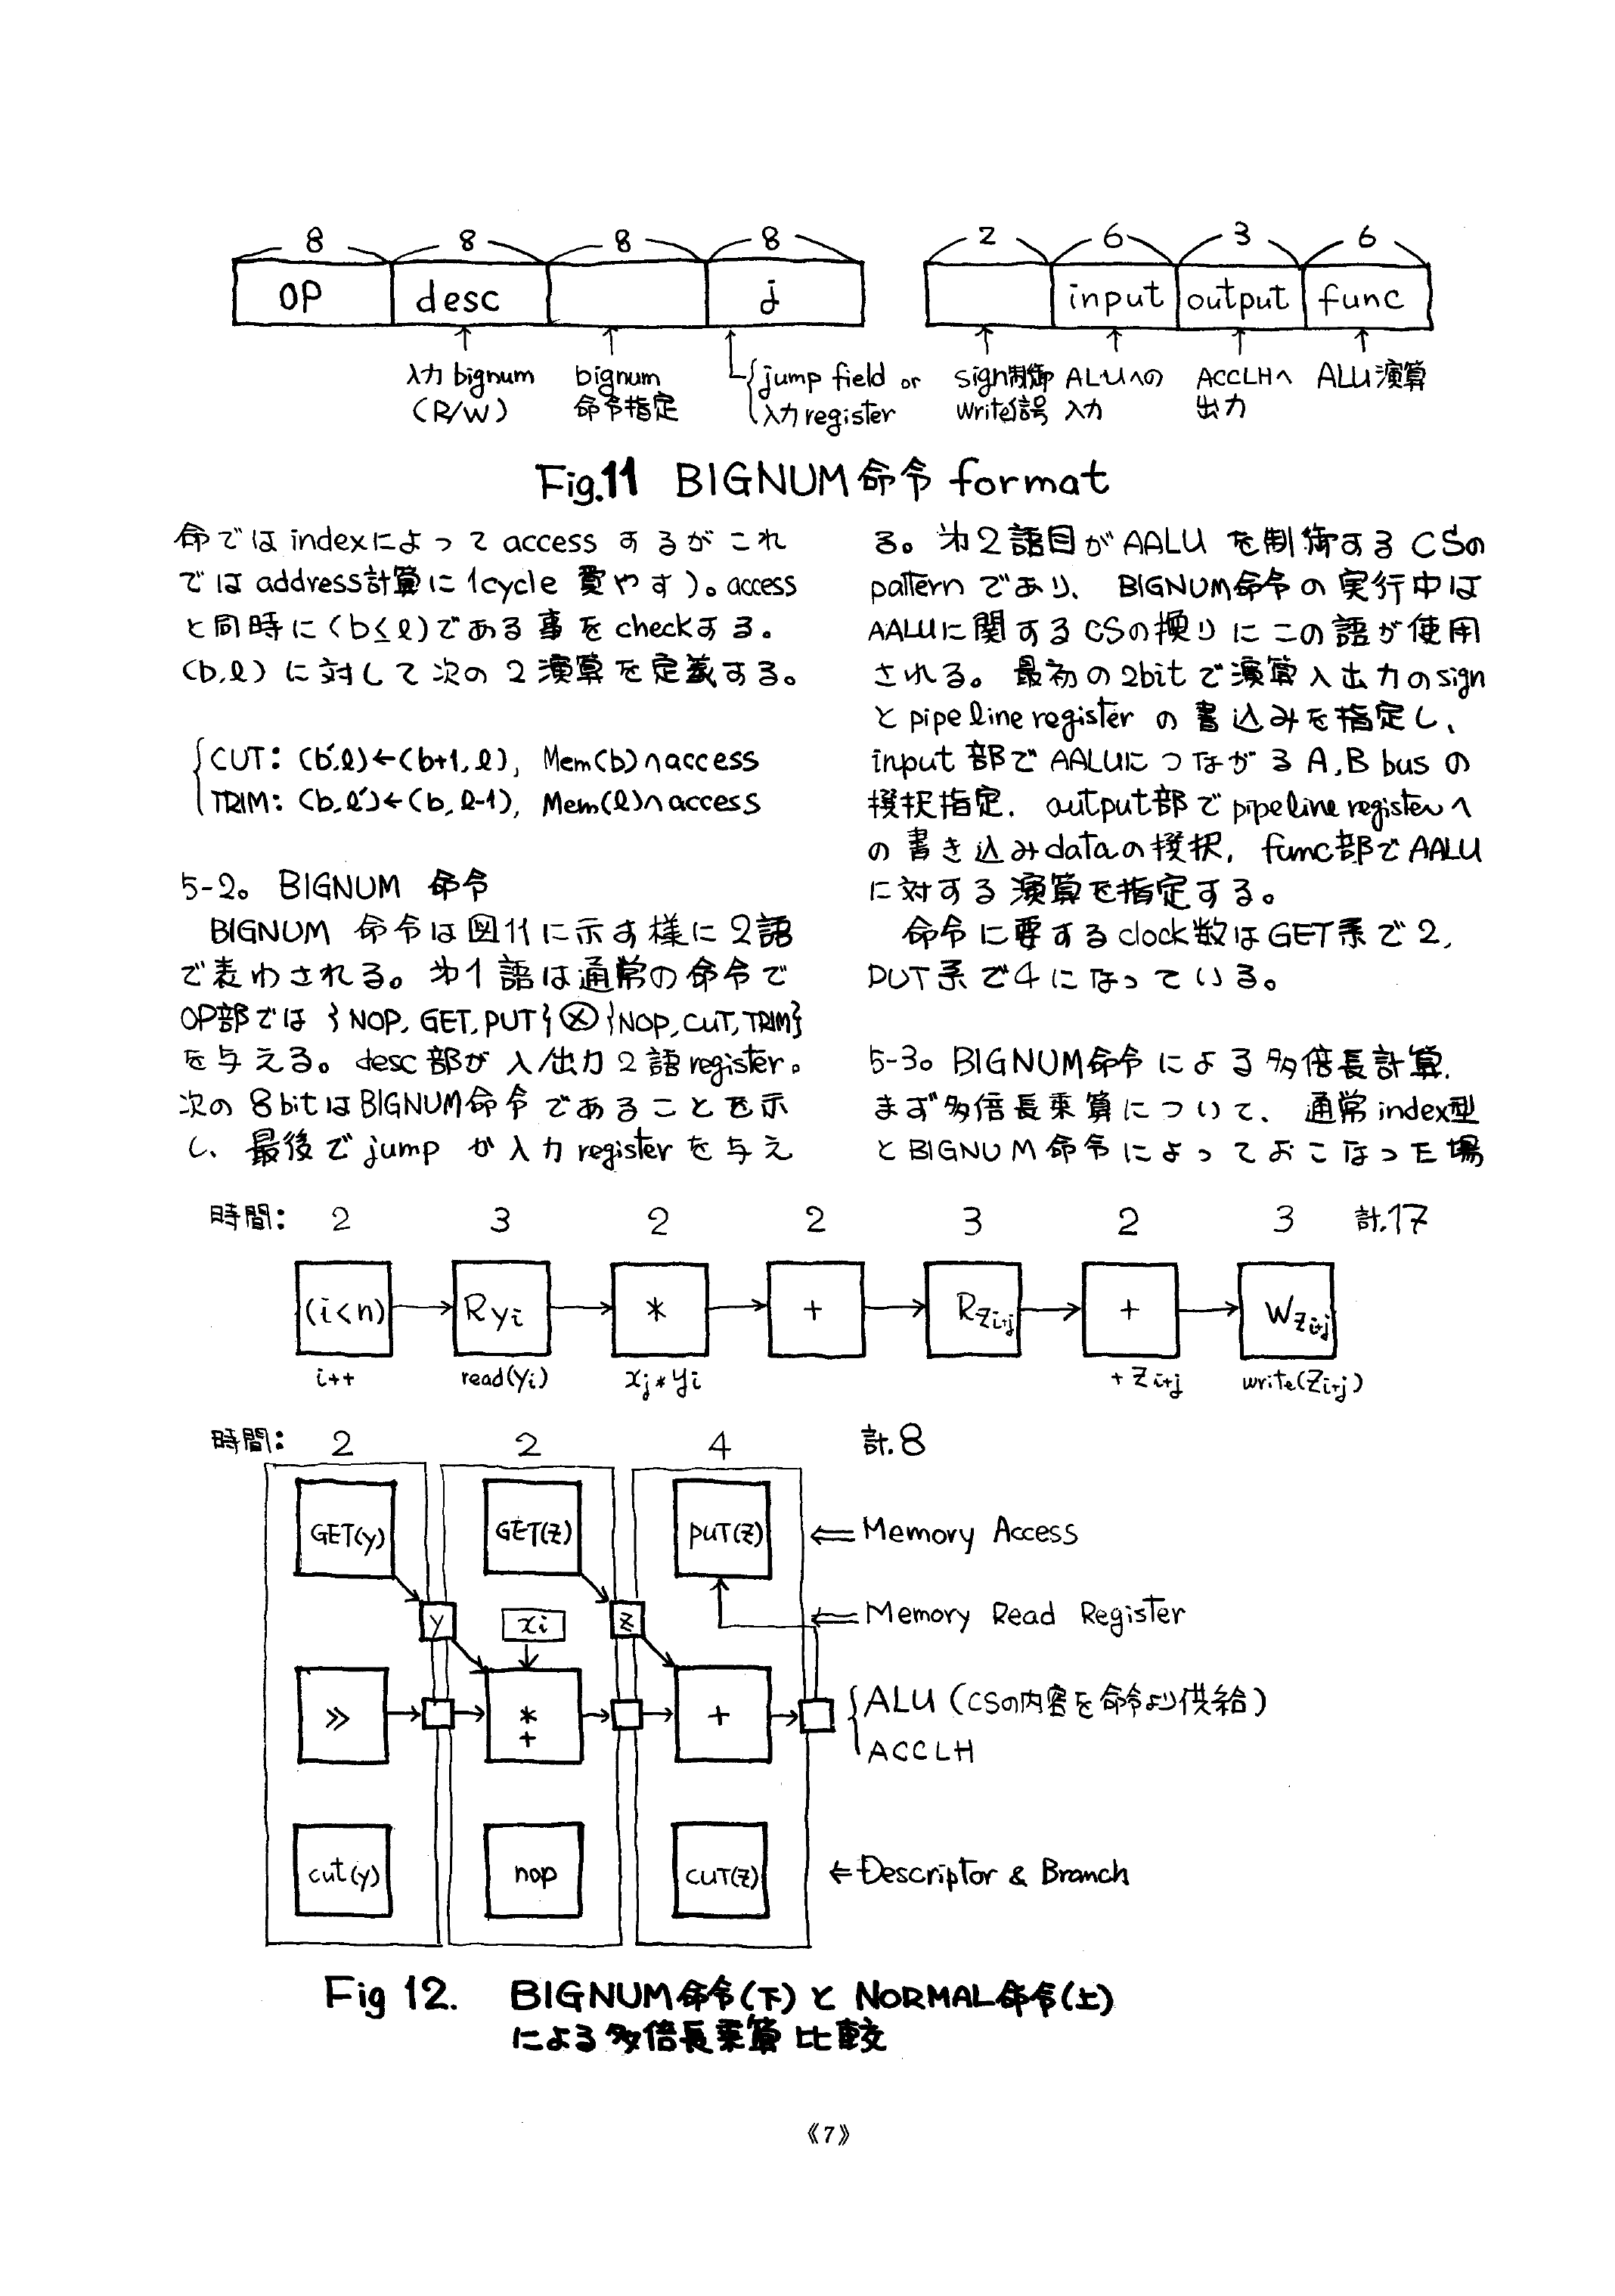 8 8 8 8 2 6 3 6
OP desc j input output func
入力 bignum (R/W)
bignum 命令指定
jump field or 入力 register
sign制御 Write信号
ALUへの 入力
ACCLHへ 出力
ALU 演算
Fig.11 BIGNUM 命令 format
命では indexによって access するがこれ
では address計算に 1cycle 費やす)。access
と同時に (b≤l)である事を checkする。
(b,l) に対して次の 2 演算を定義する。
CUT: (b',l)←(b+1,l), Mem(b)へaccess
TRIM: (b,l')←(b,l-1), Mem(l)へaccess
5-2。 BIGNUM 命令
BIGNUM 命令は図11に示す様に2語
で表わされる。 㐧1語は通常の命令で
OP部では {NOP, GET, PUT}⊗{NOP, CUT, TRIM}
を与える。 desc部が 入/出力 2語 register。
次の 8bitは BIGNUM命令であることを示
し、最後で jump か入力 registerを与え
る。㐧2語目が AALU を制御する CSの
pattern であり、 BIGNUM命令の実行中は
AALUに関するCSの換りにこの語が使用
される。最初の2bitで演算入出力のsign
と pipeline register の書込みを指定し、
input 部で AALUにつながる A,B bus の
撰択指定. output部で pipeline registerへ
の書き込みdataの撰択, func部でAALU
に対する演算を指定する。
命令に要する clock数は GET系で 2,
PUT系で4になっている。
5-3。 BIGNUM命令による多倍長計算.
まず多倍長乗算について、通常index型
と BIGNUM 命令によっておこなった場
時間: 2 3 2 2 3 2 3 計.17
(i<n) Ryi * + Rzi+j + Wzi+j
i++ read(yi) xj*yi +zi+j write(zi+j)
時間: 2 2 4 計.8
GET(y) GET(z) PUT(z) ⇐ Memory Access
y xi z ⇐ Memory Read Register
≫ * + + ALU (CSの内容を命令より供給)
ACCLH
cut(y) nop CUT(z) ← Descriptor & Branch
Fig 12. BIGNUM命令(下)と NORMAL命令(上)
による多倍長乗算 比較
《7》